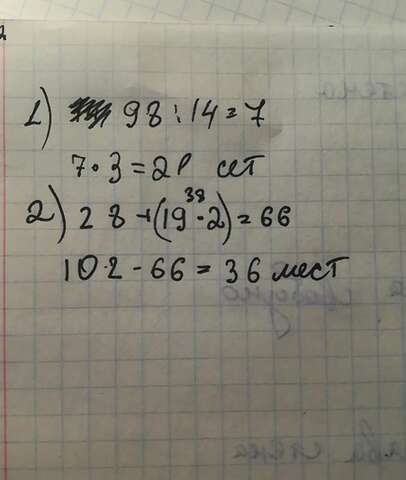 1) 98 : 14 = 7
7 · 3 = 21 сет
38
2) 28 + (19 · 2) = 66
102 - 66 = 36 мест